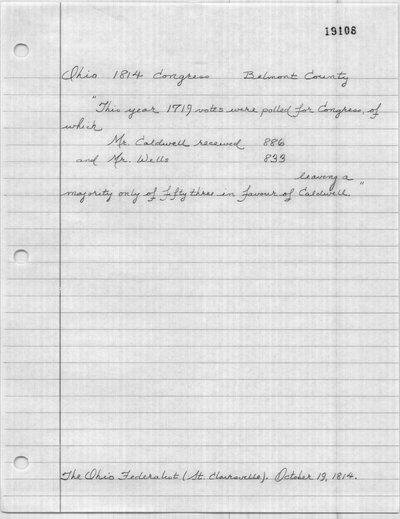 19108
Ohio 1814 Congress Belmont County
"This year 1719 votes were polled for Congress, of
which
Mr. Caldwell received 886
and Mr. Wells 833
leaving a
majority only of fifty three in favour of Caldwell."
The Ohio Federalist (St. Clairsville). October 19, 1814.